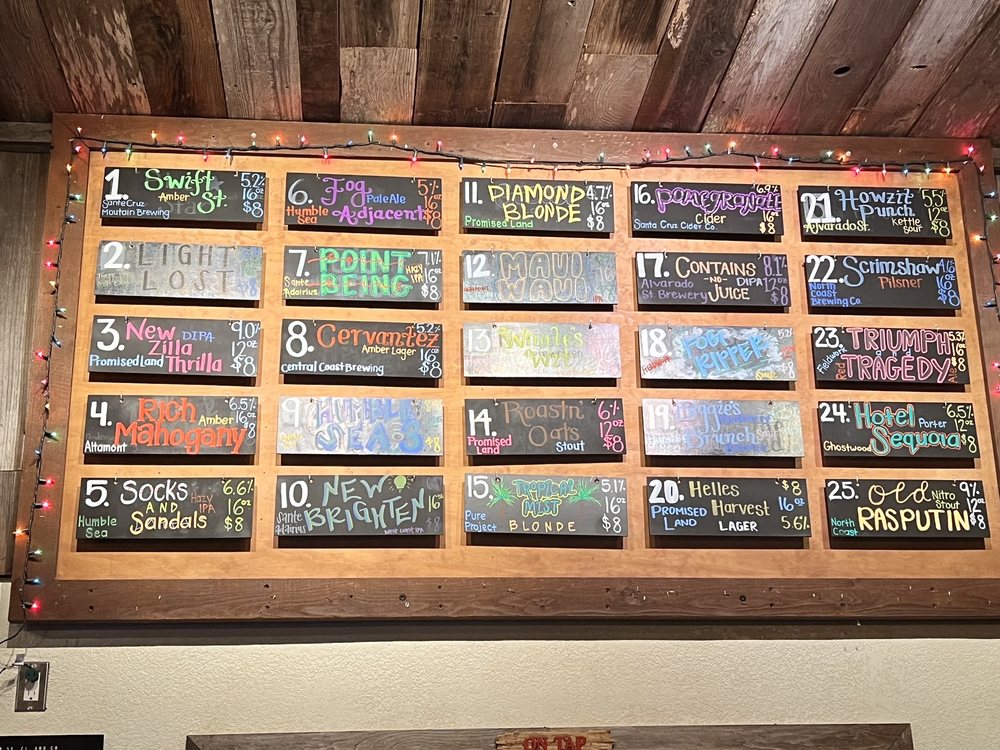 1. Swift St
Amber
5.2%
16oz
$8
Santa Cruz
Moutain Brewing
2. LIGHT
LOST
3. New
Zilla
Thrilla
DIPA
9.0%
12oz
$8
Promised Land
4. Rich
Mahogany
Amber
6.5%
16oz
$8
Altamont
5. Socks
AND
Sandals
Hazy
IPA
6.6%
16oz
$8
Humble
Sea
6. Fog
Adjacent
Pale Ale
5%
16
$8
Humble
Sea
7. POINT
BEING
HAZY
IPA
7.1%
16
$8
Sante
Adairius
8. Cervantez
Amber Lager
5.2%
16oz
$8
Central Coast Brewing
9. HUMBLE
SEAS
10. NEW
BRIGHTEN
16oz
$8
Sante
Adairius
West Coast IPA
11. DIAMOND
BLONDE
4.7%
16oz
$8
Promised Land
12. MAUI
WAUI
13.
14. Roastn'
Oats
Stout
6%
12oz
$8
Promised
Land
15. Tropical
Mist
BLONDE
5.1%
16oz
$8
Pure
Project
16. POMEGRANATE
Cider
6.9%
16oz
$8
Santa Cruz Cider Co.
17. CONTAINS
-NO-
JUICE
DIPA
8.1%
12oz
$8
Alvarado
St. Brewery
18. FOOT
RIPPER
5.2%
19.
Brunch
20. Helles
Harvest
LAGER
$8
16oz
5.6%
PROMISED
LAND
21. Howzit
Punch
Kettle
Sour
5.5%
12oz
$8
Alvarado St.
22. Scrimshaw
Pilsner
4.6
16oz
$8
North
Coast
Brewing Co.
23. TRIUMPH
TRAGEDY
Red
Ale
5.3%
16oz
$8
Fieldwork
24. Hotel
Sequoia
Porter
6.5%
12oz
$8
Ghostwood
25. Old
RASPUTIN
Nitro
Stout
9%
12oz
$8
North
Coast
ON TAP